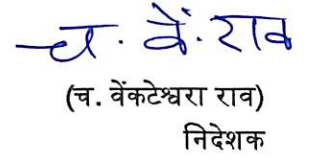 च. वें. राव
(च. वेंकटेश्वरा राव)
निदेशक